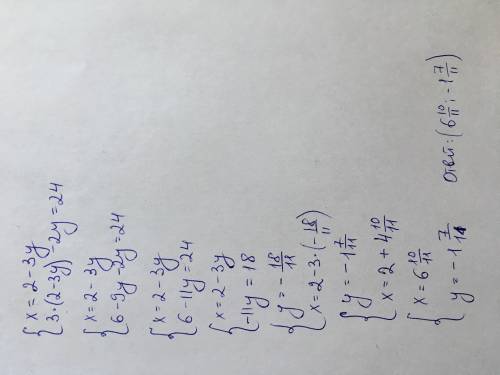 x = 2 - 3y
3·(2-3y) - 2y = 24
x = 2 - 3y
6 - 9y - 2y = 24
x = 2 - 3y
6 - 11y = 24
x = 2 - 3y
-11y = 18
y = - 18/11
x = 2 - 3·(- 18/11)
y = -1 7/11
x = 2 + 4 10/11
x = 6 10/11
y = -1 7/11
Ответ: (6 10/11; -1 7/11)